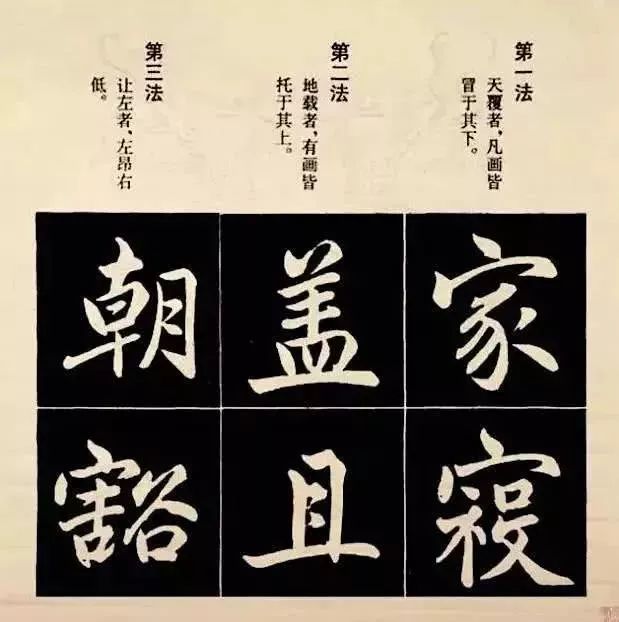 第一法
天覆者，凡画皆
冒于其下。
第二法
地载者，有画皆
托于其上。
第三法
让左者，左昂右
低。
家
盖
且
朝
豁